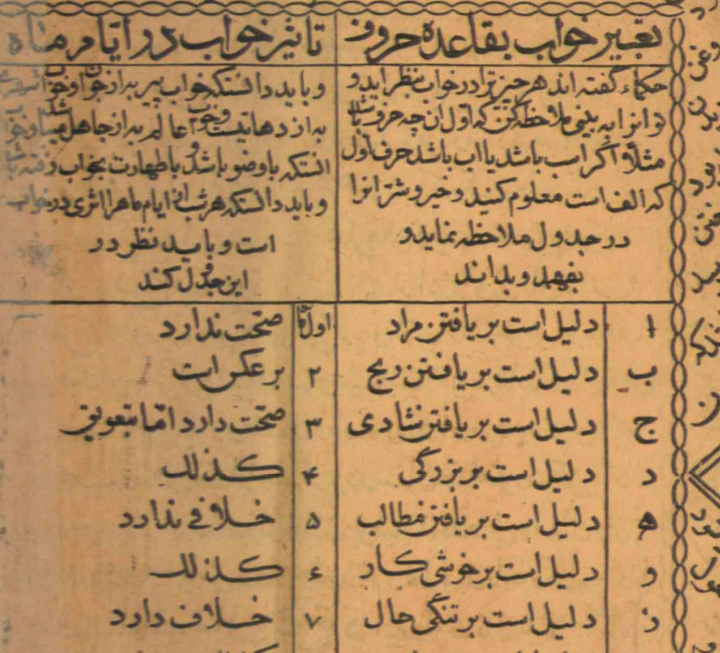 تعبیر خواب بقاعده حروف
حکماء گفته اند هر چیز ترا در خواب بنظر اید و
تو انرا به بینی ملاحظه کن که اول ان چه حرفست
مثلا اگر اسب باشد یا اب باشد حرف اول
که الف است معلوم کنید و خیر و شر انرا
در جدول ملاحظه نماید و
بفهمد و بداند
ا دلیل است بر یافتن مراد
ب دلیل است بر یافتن رنج
ج دلیل است بر یافتن شادی
د دلیل است بر بزرگی
ه دلیل است بر یافتن مطالب
و دلیل است بر خوشی کار
ز دلیل است بر تنگی حال
تاثیر خواب در ایام ماه
و باید دانستکه خواب پیر به از جوان
به از و خواب عالم به از جاهل
انستکه با وضو باشد با طهارت بخواب رفته
و باید دانستکه هر شب از ایام ماه را اثری در خواب
است و باید نظر در
این جدول کند
اول صحت ندارد
۲ بر عکس است
۳ صحت دارد اما بتعویق
۴ کذلک
۵ خلافی ندارد
۶ کذلک
۷ خلاف دارد